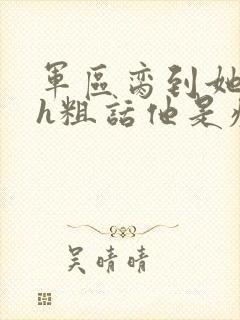 軍區脔到她
h粗話他是
吴晴晴